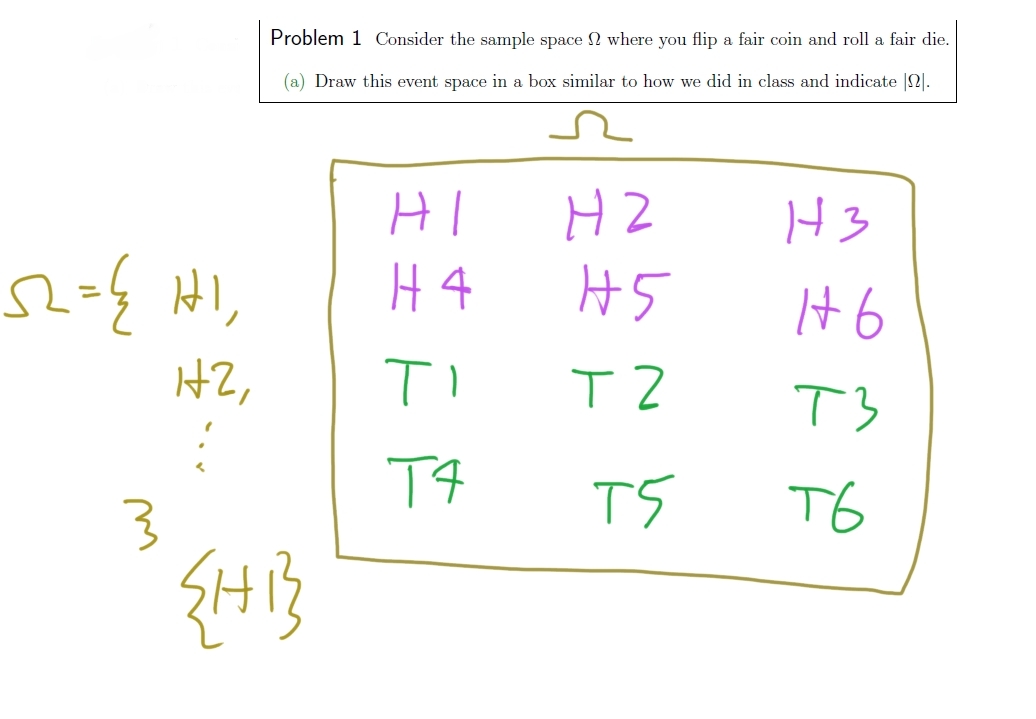 Problem 1 Consider the sample space Ω where you flip a fair coin and roll a fair die.
(a) Draw this event space in a box similar to how we did in class and indicate |Ω|.
Ω
H1 H2 H3
H4 H5 H6
T1 T2 T3
T4 T5 T6
Ω={ H1,
H2,
⋮
}
{H1}